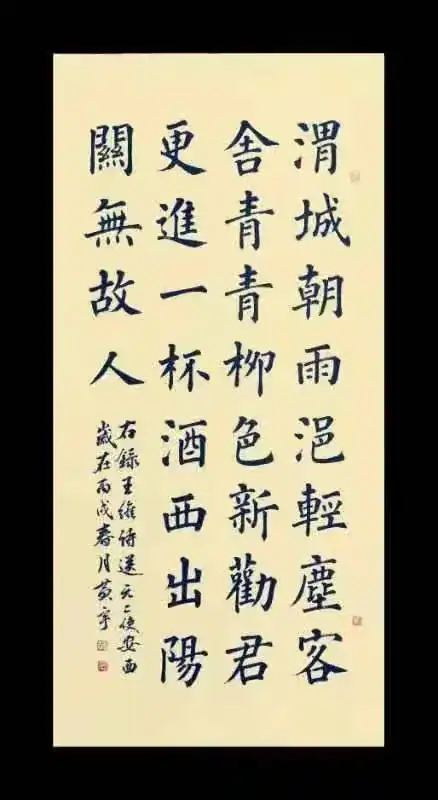 渭城朝雨浥輕塵客
舍青青柳色新勸君
更進一杯酒西出陽
關無故人
右錄王維詩送元二使安西
歲在丙戌春月黃寧